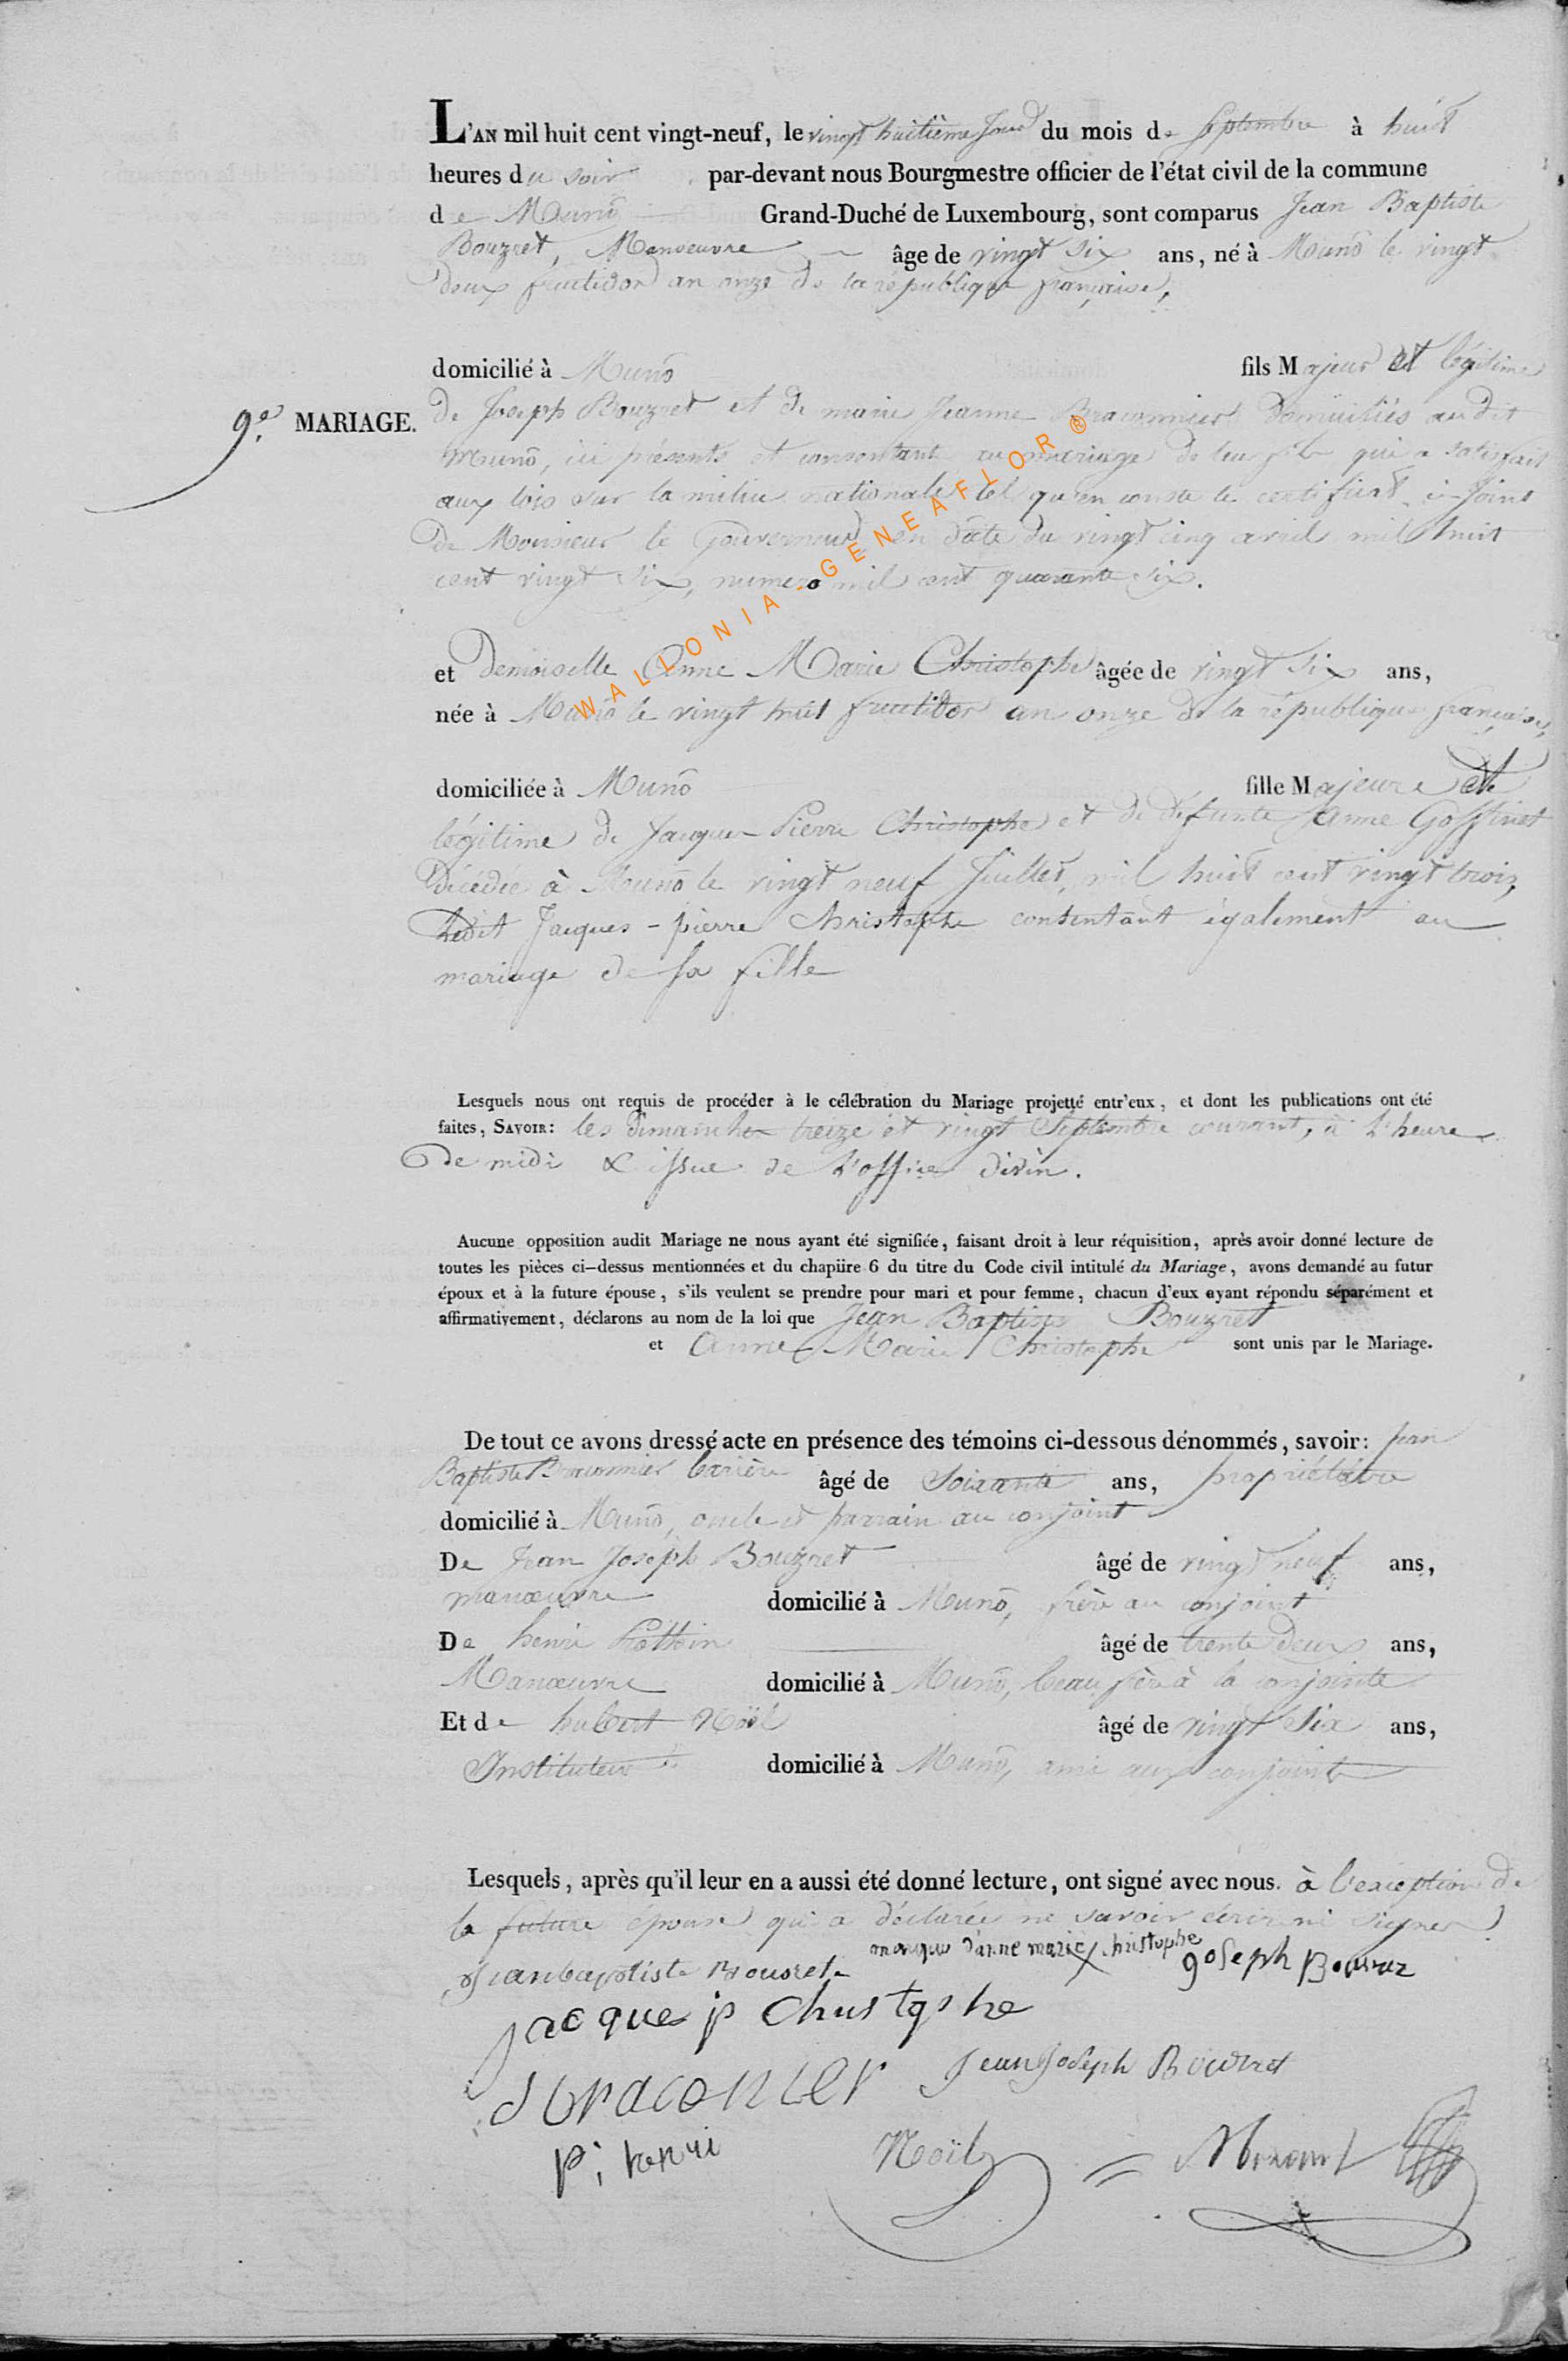 L'AN mil huit cent vingt-neuf, le vingt huitième jour du mois de Septembre à huit
heures du soir par-devant nous Bourgmestre officier de l'état civil de la commune
de Munô Grand-Duché de Luxembourg, sont comparus Jean Baptiste
Bouzret, Manoeuvre âge de vingt Six ans, né à Munô le vingt
deux fructidor an onze de la république française,
domicilié à Munô fils Majeur et légitime
9e. MARIAGE. de Joseph Bouzret et de marie Jeanne Braconnier domiciliés audit
munô, ici présents et consentant au mariage de leur fils qui a satisfait
aux lois sur la milice nationale tel qu'en conste le certificat ci-joint
de Monsieur le Gouverneur en date du vingt cinq avril mil huit
cent vingt six, numero mil cent quarante six.
WALLONIA - GENEAFLOR ®
et demoiselle Anne Marie Christophe âgée de vingt Six ans,
née à Munô le vingt huit fructidor an onze de la république française,
domiciliée à Munô fille Majeure et
légitime de Jacques Pierre Christophe et de défunte Anne Goffinet
décédée à Munô le vingt neuf Juillet mil huit cent vingt trois,
ledit Jacques-pierre Christophe consentant également au
mariage de sa fille
Lesquels nous ont requis de procéder à le célébration du Mariage projetté entr'eux, et dont les publications ont été
faites, SAVOIR: les dimanches treize et vingt Septembre courant, à l'heure
de midi & issue de l'office divin.
Aucune opposition audit Mariage ne nous ayant été signifiée, faisant droit à leur réquisition, après avoir donné lecture de
toutes les pièces ci-dessus mentionnées et du chapiire 6 du titre du Code civil intitulé du Mariage, avons demandé au futur
époux et à la future épouse, s'ils veulent se prendre pour mari et pour femme, chacun d'eux ayant répondu séparément et
affirmativement, déclarons au nom de la loi que Jean Baptiste Bouzret
et Anne Marie Christophe sont unis par le Mariage.
De tout ce avons dressé acte en présence des témoins ci-dessous dénommés, savoir: jean
Baptiste Braconnier âgé de Soixante ans, propriétaire
domicilié à Munô, oncle et parrain au conjoint
De Jean Joseph Bouzret âgé de vingt neuf ans,
manœuvre domicilié à Munô, frère au conjoint
De henri âgé de trente deux ans,
Manœuvre domicilié à Munô, beau frère à la conjointe
Et de hubert Noël âgé de vingt Six ans,
Instituteur domicilié à Munô, ami aux conjoints
Lesquels, après qu'il leur en a aussi été donné lecture, ont signé avec nous. à l'exception de
la future épouse qui a déclarée ne savoir écrire ni signer
marque d'anne marie X christophe
jeanbaptiste Bousret Joseph
jacque p Christophe
Jean Joseph Bouzret
Noël
p: henri